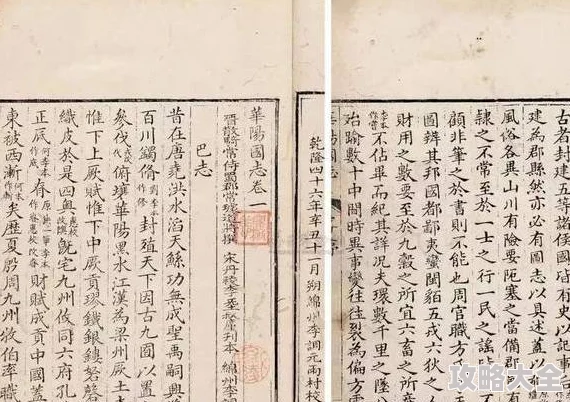 古者封建五等諸侯國皆有史以記事
建為郡縣然亦必有圖志以具述蓋以
風俗各異山川有險要阨塞之當備郡
隸之不常至於一士之行一民之謠
顧非筆之於書則不能也周官職方
圖辨其邦國都鄙夷蠻閩貉五戎六狄之人
財用之數要至於九穀之所宜六畜之
不佔畢而紀其詳況夫環數千里之
殆踰數十中間時異事變往往裂為偏方
乾隆四十六年辛丑十一月朔綿州李調元雨村校
華陽國志卷一
晉散騎常侍蜀郡常璩道將撰 宋丹稜李 刊本 綿州李
巴志
昔在唐堯洪水滔天鯀功無成聖禹嗣興
百川蠲脩 封殖天下因古九囿以置
參伐 俯壤華陽黑水江漢為梁州厥土
惟下上厥賦惟下中厥貢璆鐵銀鏤砮磬
織皮於是四 既宅九州攸同六府孔
正辰 何本作底 春 財賦成貢中國蓋
東被西漸 何本作漸 失歷夏殷周九州牧伯率職
攻略大全